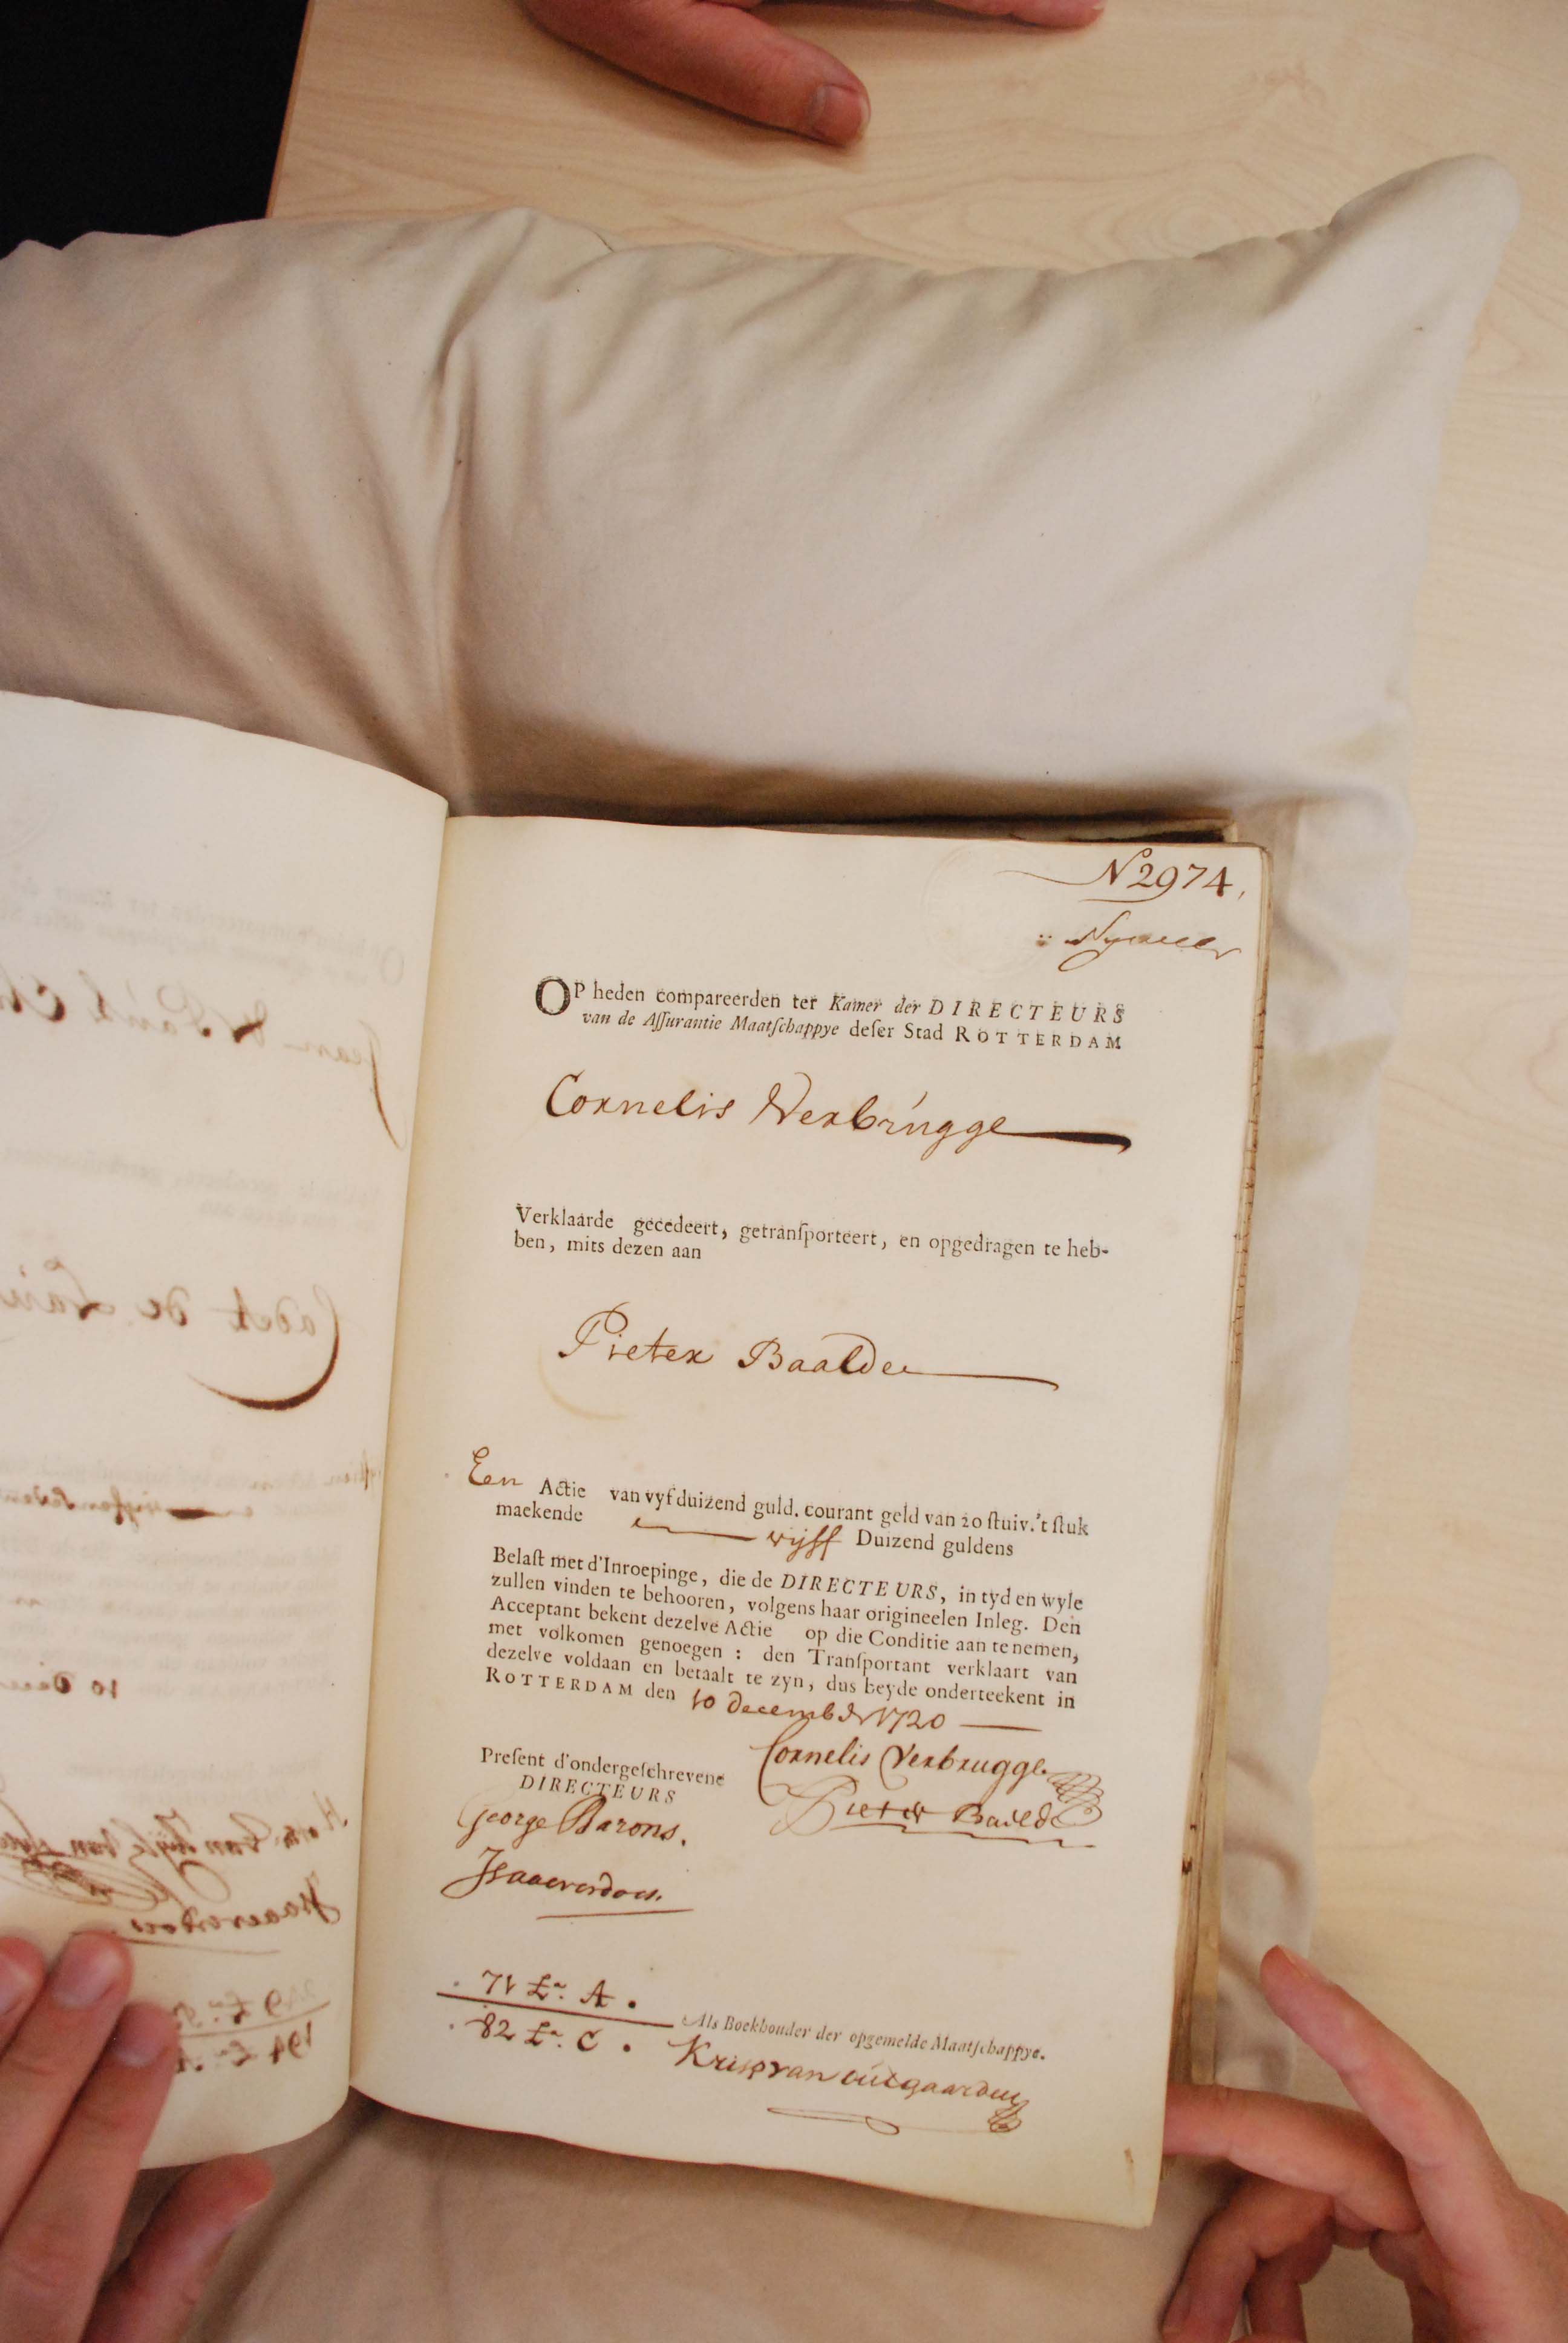 N 2974,
OP heden compareerden ter Kamer der DIRECTEURS
van de Aſſurantie Maatſchappye deſer Stad ROTTERDAM
Cornelis Verbrugge
Verklaarde gecedeert, getranſporteert, en opgedragen te heb-
ben, mits dezen aan
Pieter Baalde
Een Actie van vyf duizend guld. courant geld van 20 ſtuiv. 't ſtuk
maekende vijff Duizend guldens
Belaſt met d'Inroepinge, die de DIRECTEURS, in tyd en wyle
zullen vinden te behooren, volgens haar origineelen Inleg. Den
Acceptant bekent dezelve Actie op die Conditie aan te nemen,
met volkomen genoegen : den Tranſportant verklaart van
dezelve voldaan en betaalt te zyn, dus beyde onderteekent in
ROTTERDAM den 10 december 1720
Preſent d'ondergeſchrevene
DIRECTEURS
Cornelis Verbrugge
Pieter Baelde
George Barons.
Isaac
71 Lr. A.
82 Lr. C.
Als Boekhouder der opgemelde Maatſchappye.
Kriſp van